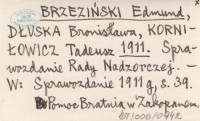 BRZEZIŃSKI Edmund,
DŁUSKA Bronisława, KORNI-
ŁOWICZ Tadeusz 1911. Spra-
wozdanie Rady Nadzorczej. —
W: Sprawozdanie 1911 g, s. 39.
Pomoc Bratnia w Zakopanem.